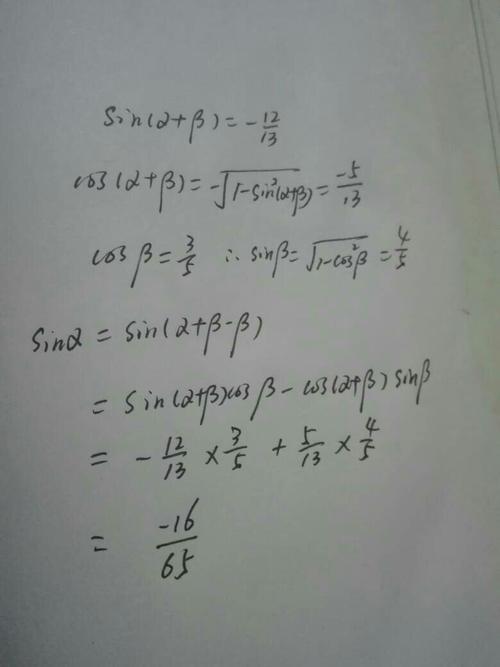 sin(α+β)=-12/13
cos(α+β)=-√(1-sin²(α+β))=-5/13
cosβ=3/5 ∴ sinβ=√(1-cos²β)=4/5
sinα=sin(α+β-β)
=sin(α+β)cosβ-cos(α+β)sinβ
=-12/13×3/5+5/13×4/5
=-16/65